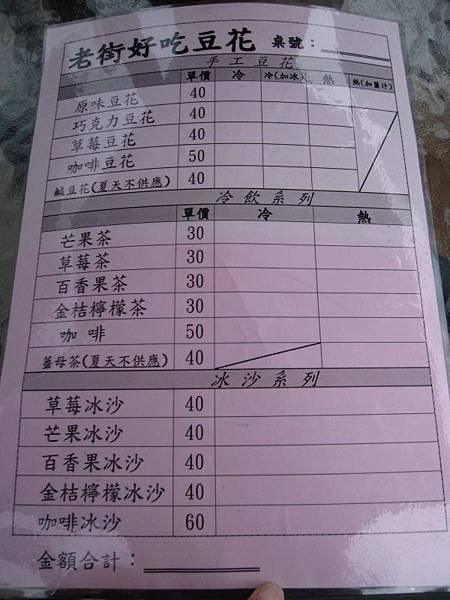 老街好吃豆花 桌號：
手工豆花
單價 冷 冷(加冰) 熱 熱(加薑汁)
原味豆花 40
巧克力豆花 40
草莓豆花 40
咖啡豆花 50
鹹豆花(夏天不供應) 40
冷飲系列
單價 冷 熱
芒果茶 30
草莓茶 30
百香果茶 30
金桔檸檬茶 30
咖啡 50
薑母茶(夏天不供應) 40
冰沙系列
草莓冰沙 40
芒果冰沙 40
百香果冰沙 40
金桔檸檬冰沙 40
咖啡冰沙 60
金額合計：